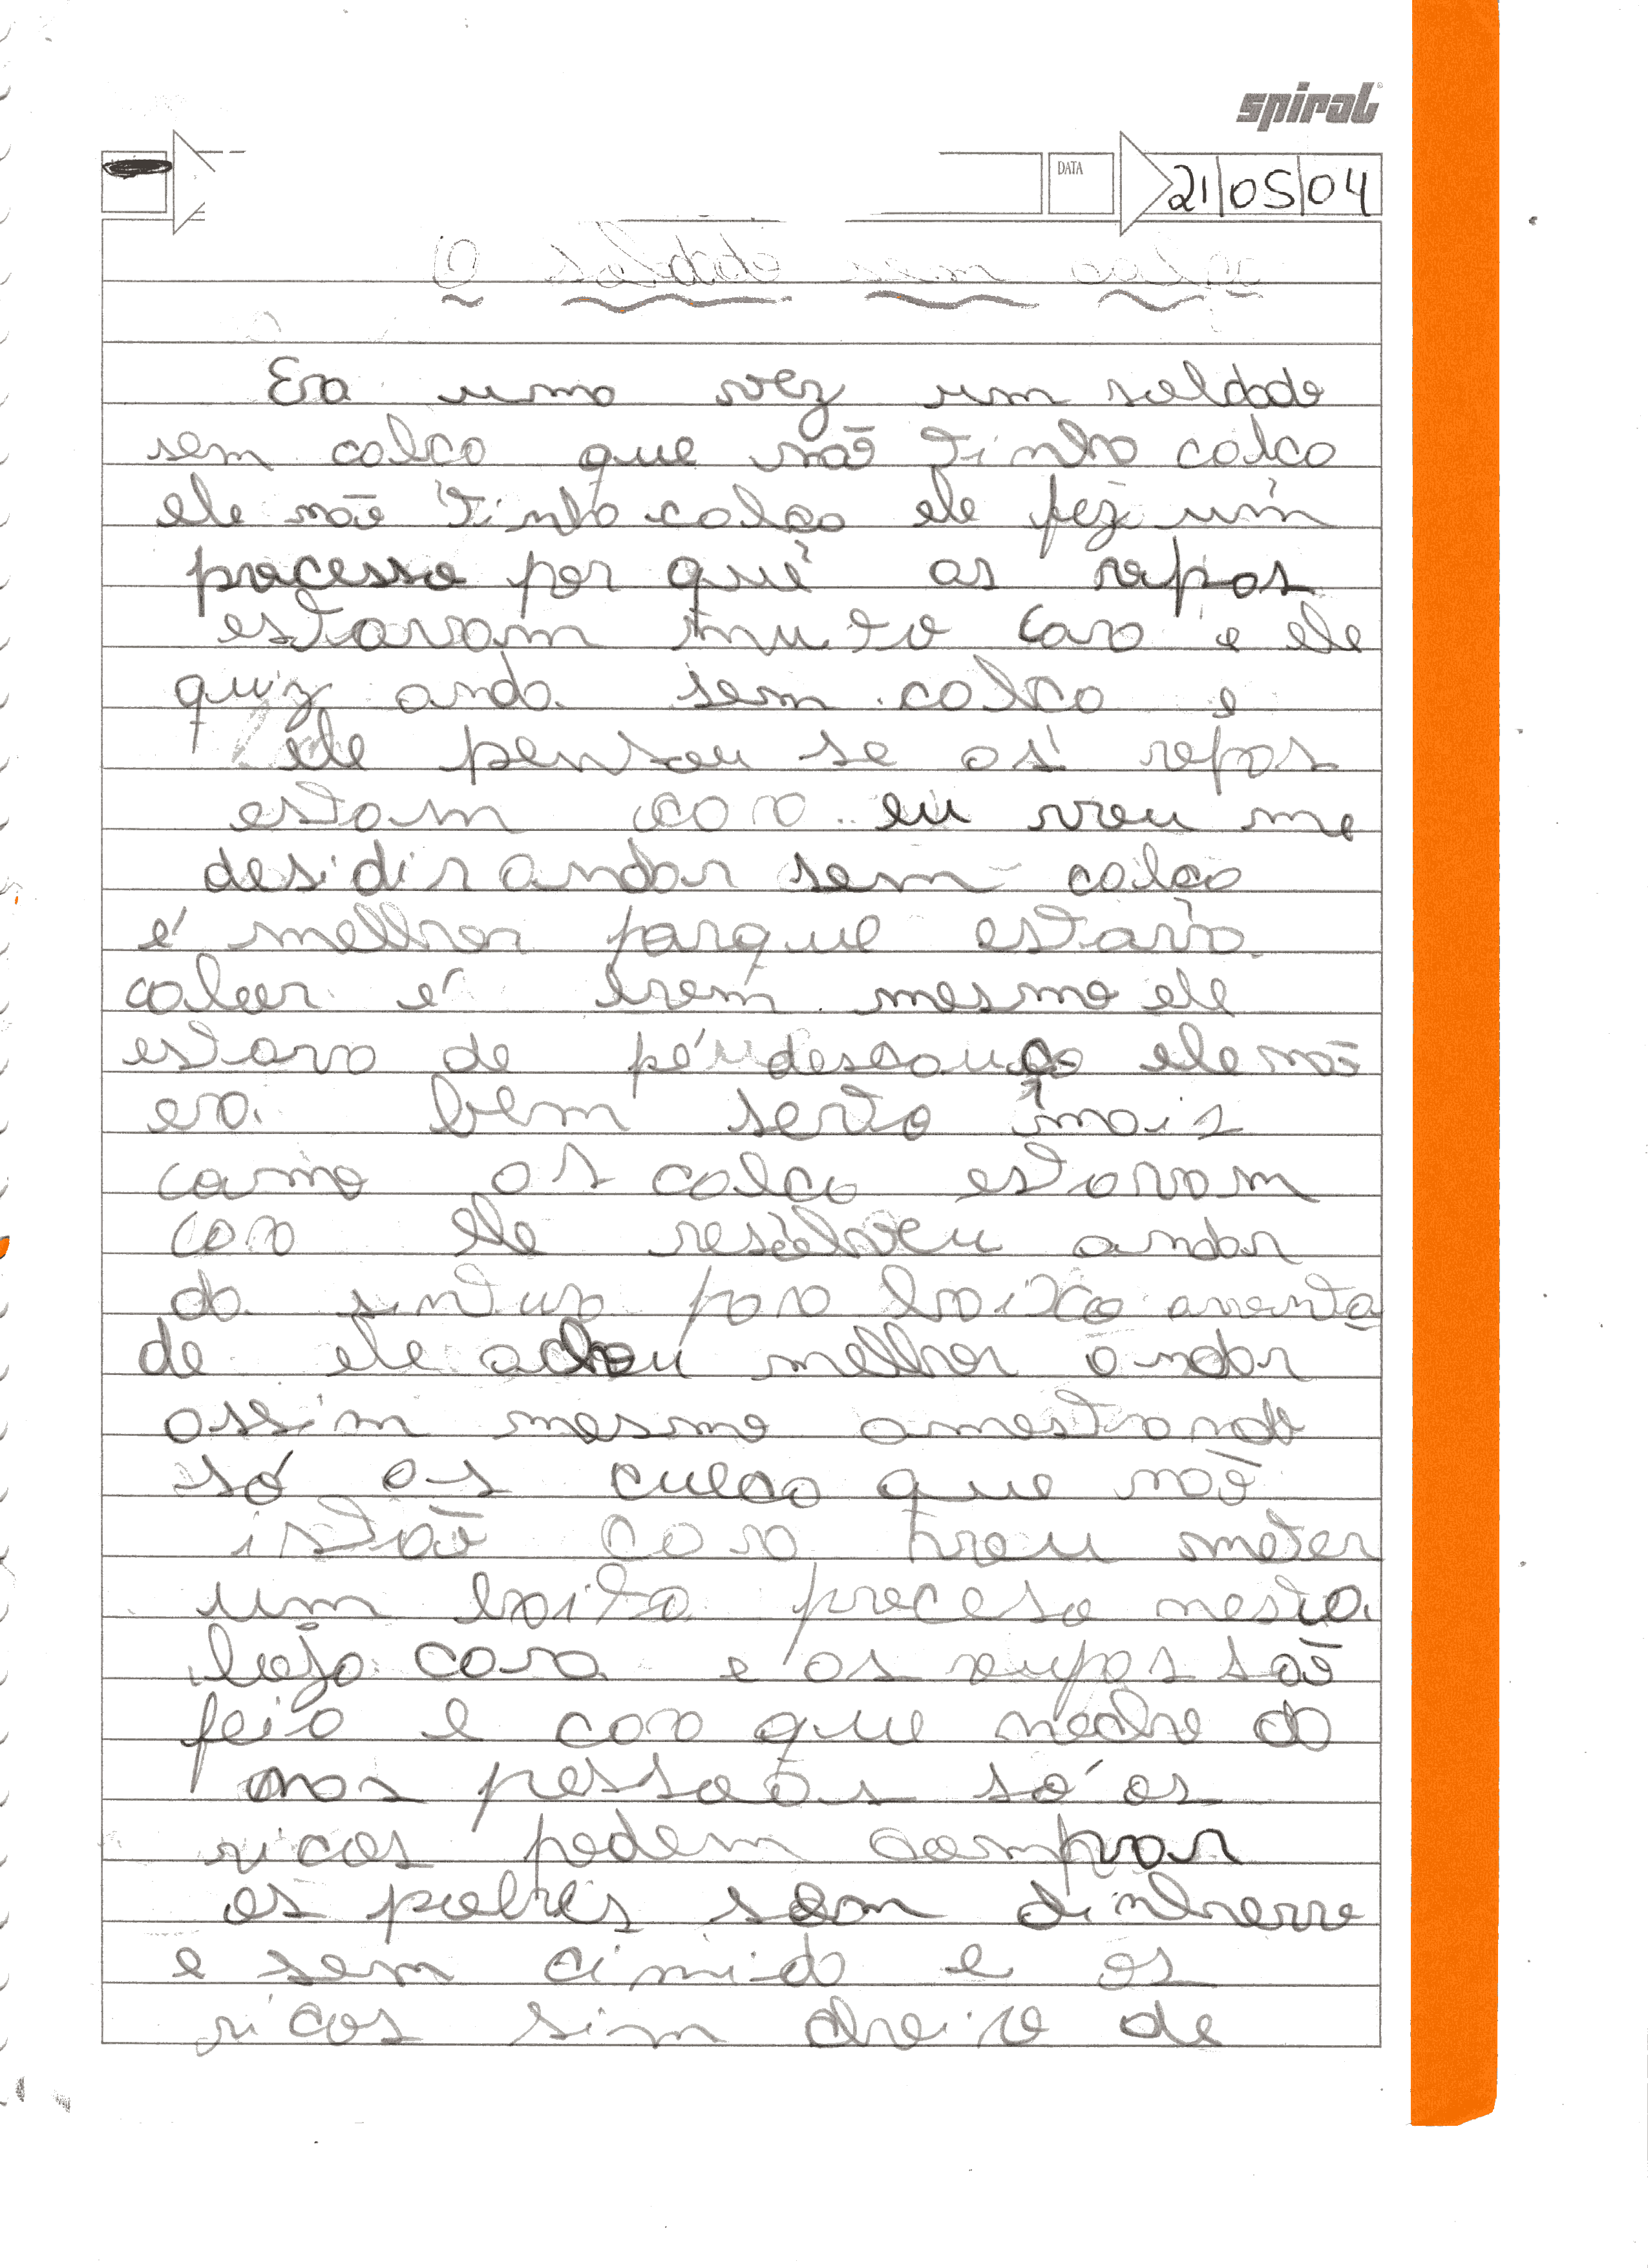 spiral
DATA 21/05/04
Era uma vez um soldado
sem calca que não tinha calca
ele não tinha calça ele fez um
processo por quê as ropas
estavam muto caro e ele
quiz anda sem calca e
ele pensou se as ropas
estam caro eu vou me
desidir andar sem calça
é melhor porque estava
calor é bem mesmo ele
estava de pé descauço ele não
era bem serto mais
camo as calca estavam
caro ele resolveu andar
da sintura para baixo avonta
de ele achou melhor andar
assim mesmo amostrando
só as cueca que não
istão caro vou meter
um baita proceso nesta
loja cara e as roupas são
feia e caro que neche da
nas pessoas só os
ricos podem comprar
os pobres som dinherro
e sem cimida e os
ricos sim cheiro de